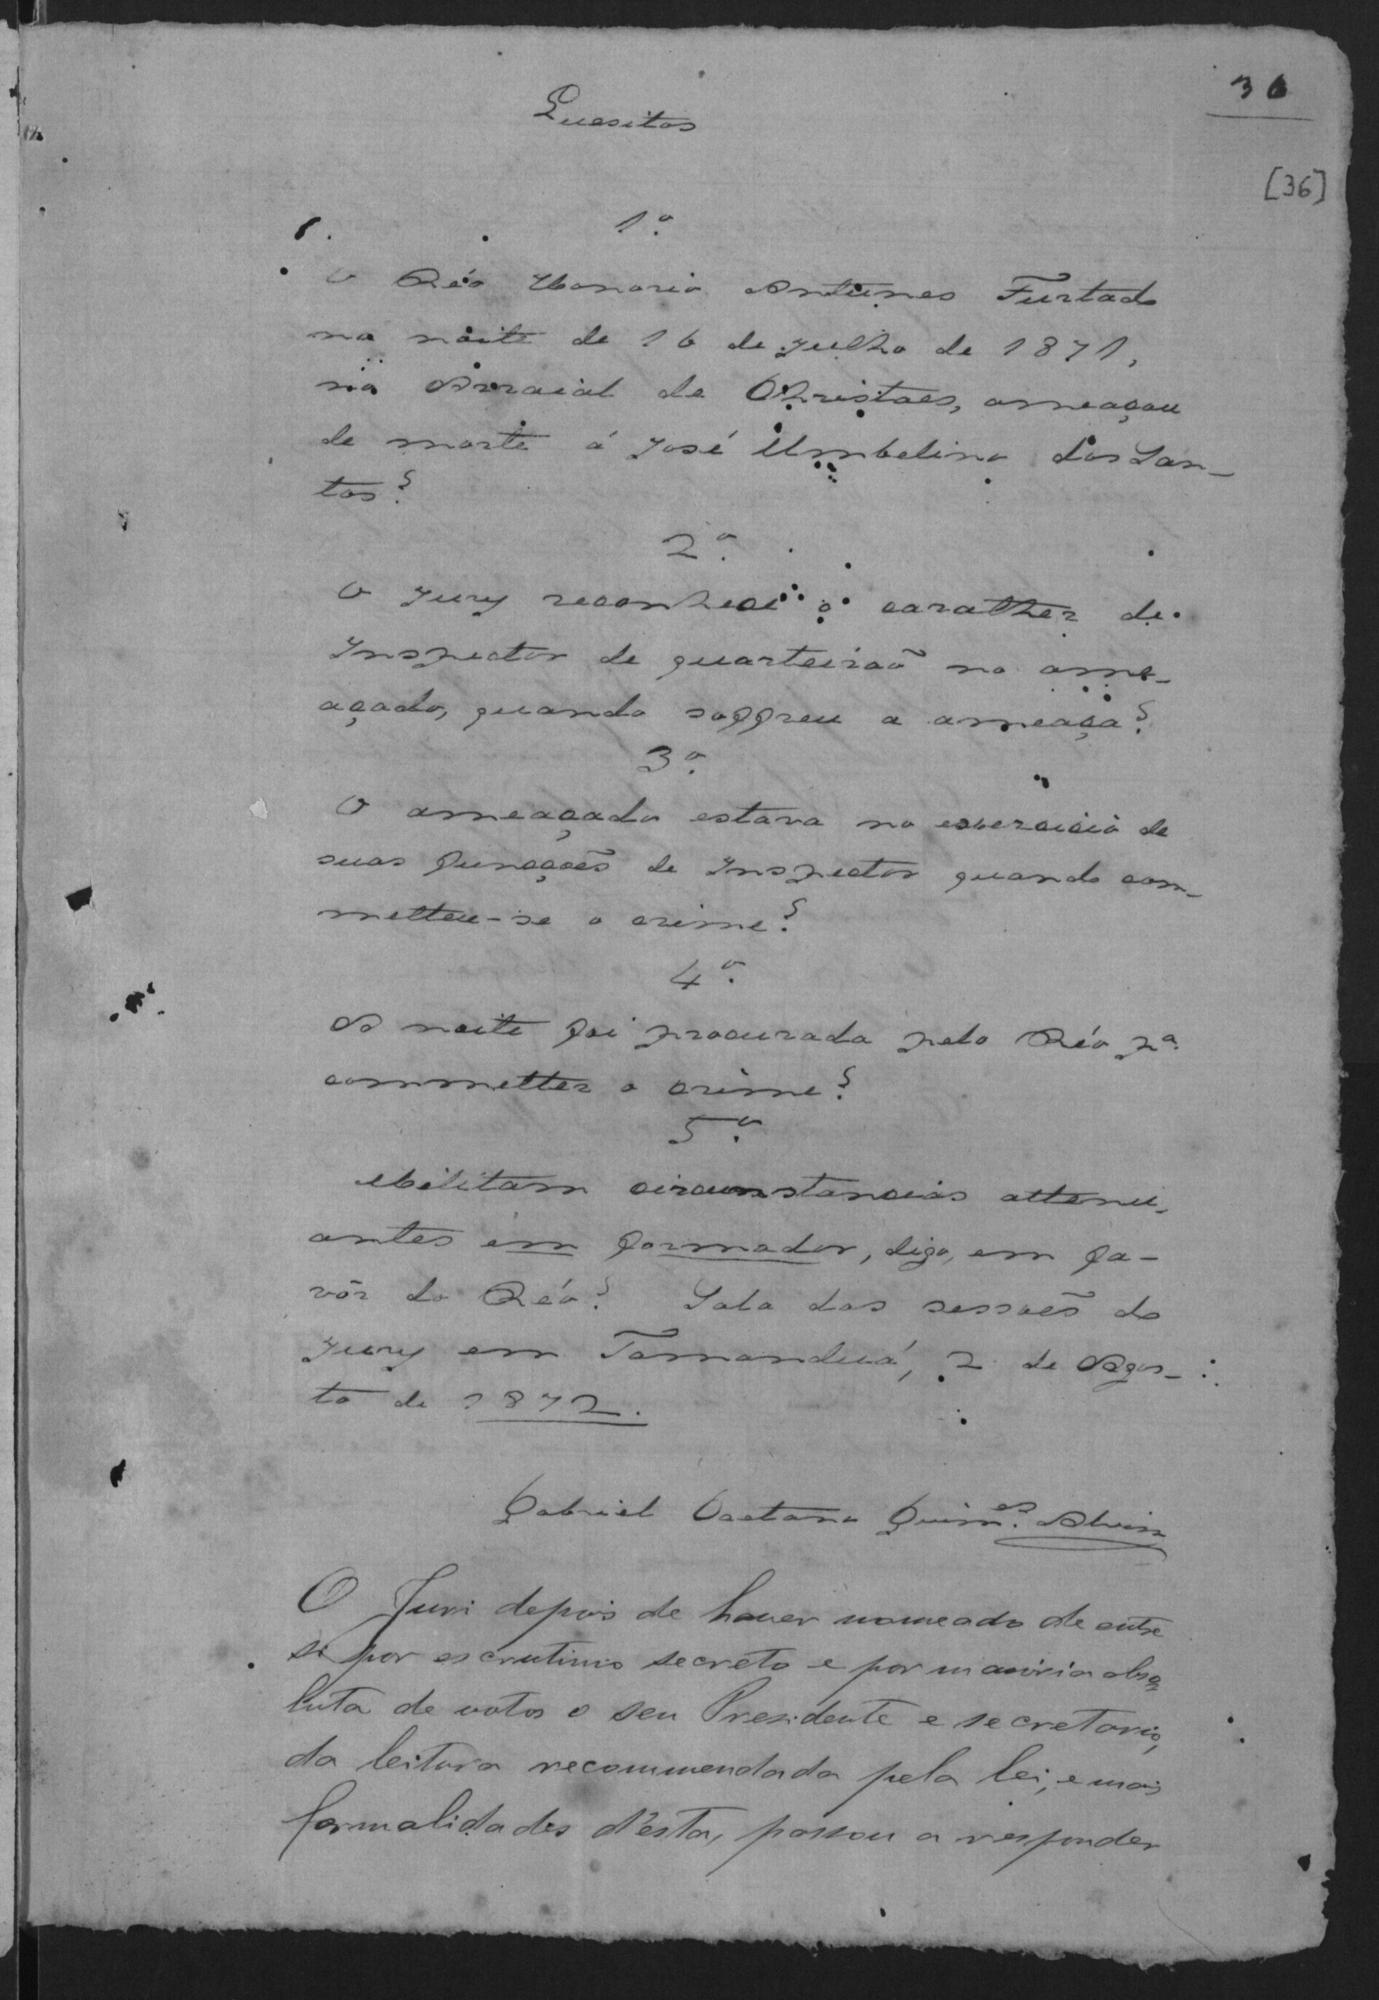 36
[36]
Quesitos
1º
O Réo Honorio Antunes Furtado
na noite de 16 de Julho de 1871,
no Arraial de Christaes, ameaçou
de morte á José Umbelino dos San-
tos?
2º
O Jury reconhece o carather de
Inspector de quarteirão no ame-
açado, quando soffreu a ameaça?
3º
O ameaçado estava no exercicio de
suas funcções de Inspector quando com-
metteu-se o crime?
4º
A noite foi procurada pelo Réo pª
commetter o crime?
5º
Militam circumstancias attenu-
antes em formador, digo, em fa-
vôr do Réo? Sala das sessões do
Jury em Tamanduá, 2 de Agos-
to de 1872.
Gabriel Caetano Guim.es Alvim
O Juri depois de haver nomeado de entre
si por escrutinio secreto e por maioria abso
luta de votos o seu Presidente e secretario,
da leitura recommendada pela lei, e mais
formalidades d'esta, passou a responder